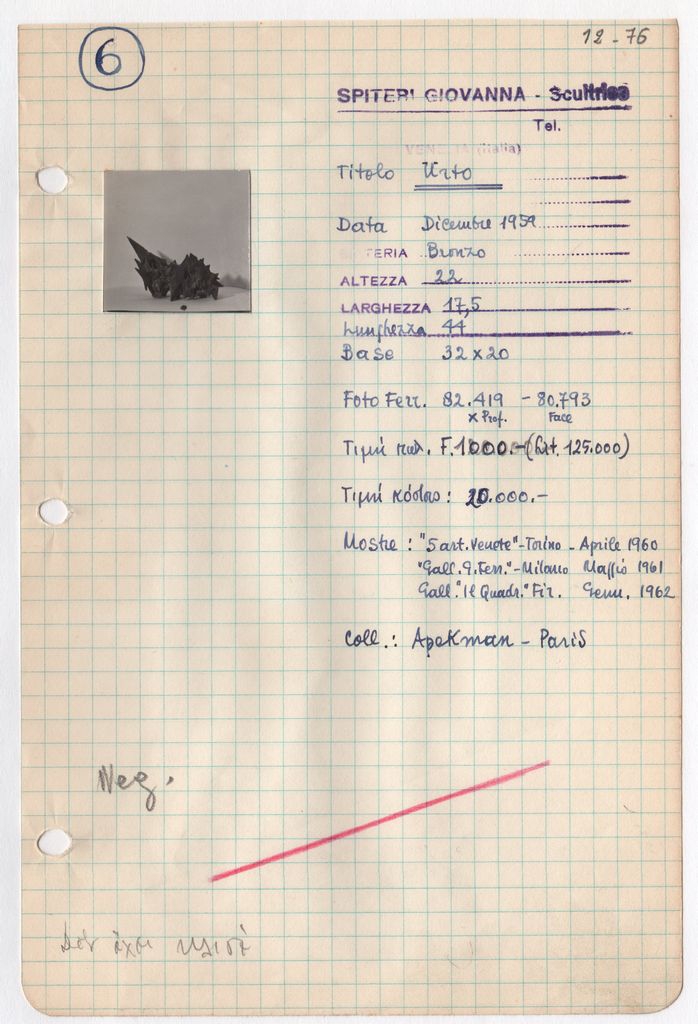 6
12-76
SPITERI GIOVANNA - Scultrice
Tel.
VENEZIA (italia)
Titolo Urto
Data Dicembre 1959
TERIA Bronzo
ALTEZZA 22
LARGHEZZA 17,5
Lunghezza 44
Base 32 x 20
Foto Ferr. 82.419 - 80.793
x Prof. Face
Τιμή πωλ. F. 1000.- (Lit. 125.000)
Τιμή κόστος: 20.000.-
Mostre: "5 art. Venete" - Torino - Aprile 1960
"Gall. 9. Ferr." - Milano Maggio 1961
Gall. "Il Quadr." Fir. Genn. 1962
Coll.: Apekman - Paris
Neg.
Δεν έχει